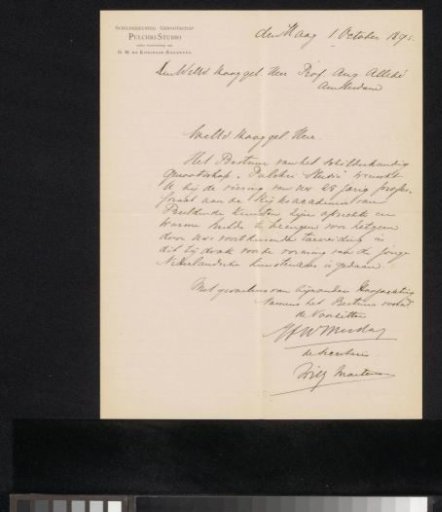 SCHILDERKUNDIG GENOOTSCHAP
PULCHRI STUDIO
H. M. DE KONINGIN-REGENTES.
den Haag 1 October 1895.
Den WelEd Hooggel. Heer Prof Aug Allebé
Amsterdam
WelEd Hooggel Heer
Het Bestuur van het schilderkundig
genootschap "Pulchri Studio" wenscht
U bij de viering van uw 25 jarig profes-
soraat aan de Rijksacademie van
Beeldende Kunsten zijne oprechte en
warme hulde te brengen voor hetgeen
door uw voortdurende toewijding in
dit tijdvak voor de vorming van de jonge
Nederlandsche kunstenaars is gedaan.
Met gevoelens van bijzondere Hoogachting
Namens het Bestuur voornd
de Voorzitter
HW Mesdag
de secretaris
Willy Martens